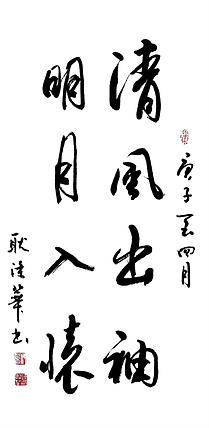 庚子夏四月
清風出袖
明月入懷
耿華书